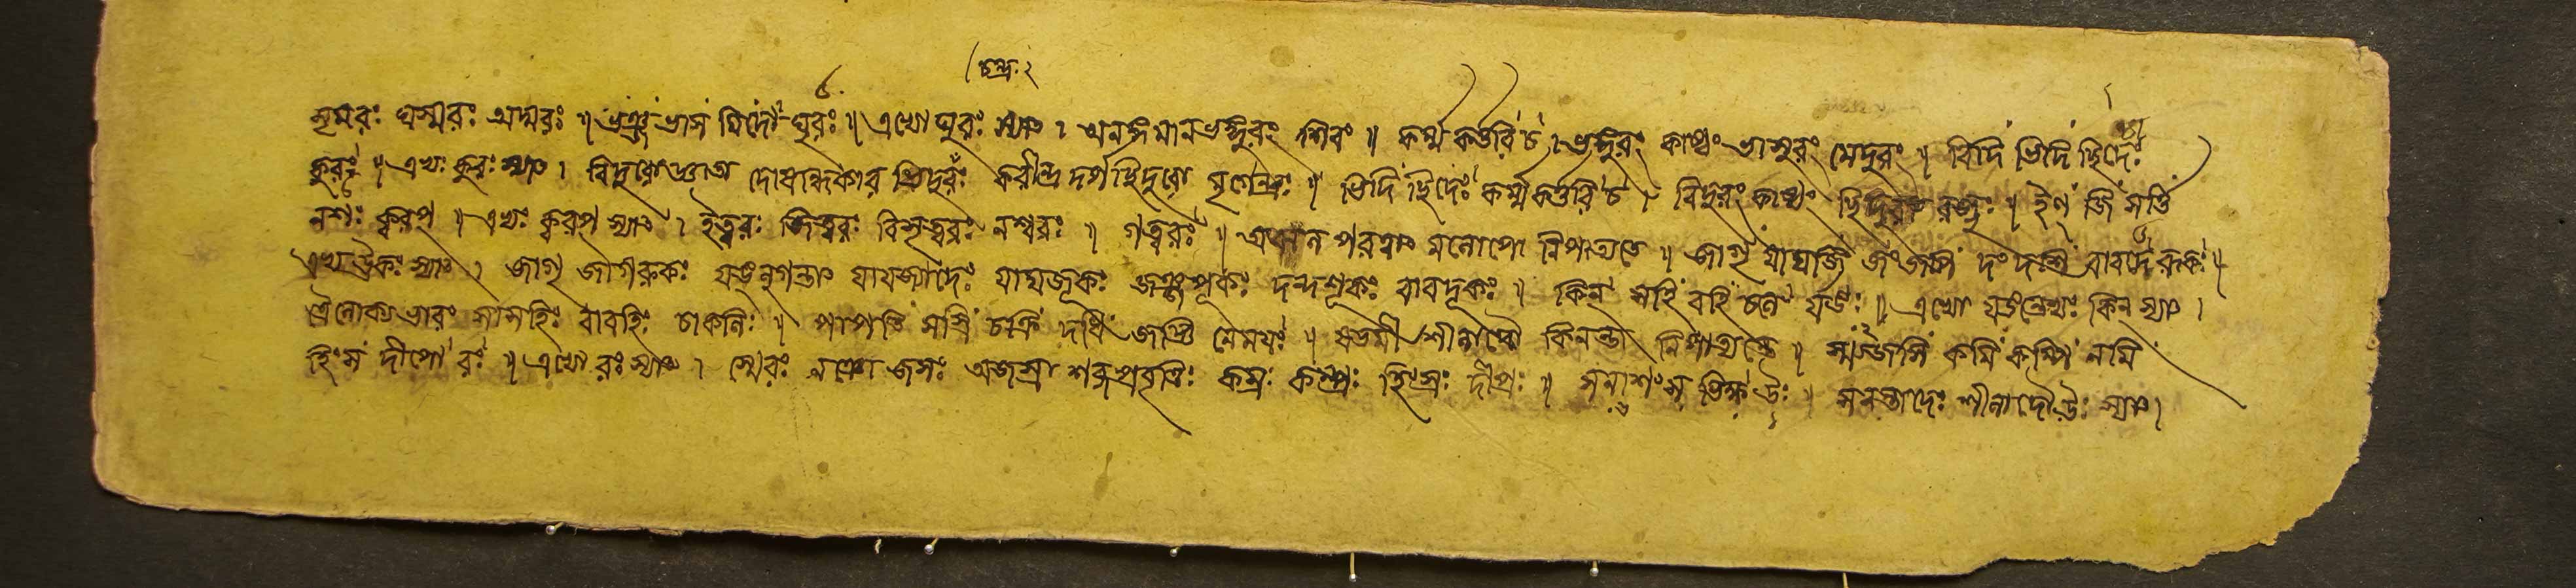 চন্দ্রঃ২
সৃমরঃ ঘস্মরঃ অদ্মরঃ ॥ ভঞ্জ ভাস মিদো ঘুরঃ ॥ এভ্যো ঘুরঃ স্যাৎ । অনঙ্গমানভঙ্গুরং শিবং ॥ কর্ম্মকর্ত্তরি চ । ভঙ্গুরং কাষ্ঠং ভাসুরং মেদুরং ॥ বিদি ভিদি ছিদেঃ
কুরঃ ॥ এভ্যঃ কুরঃ স্যাৎ । দোষান্ধকার ভিদুরঃ করীন্দ্র দর্পছিদুরো মৃগেন্দ্রঃ ॥ ভিদি ছিদেঃ কর্ম্মকর্ত্তরি চ । ভিদুরং কাষ্ঠং ছিদুরা রজ্জুঃ ॥ ইণ্ জি সর্ত্তি
নশঃ ক্বরপ্ ॥ এভ্যঃ ক্বরপ্ স্যাৎ । ইত্বরঃ জিত্বরঃ বিসৃত্বরঃ নশ্বরঃ ॥ গত্বরঃ ॥ মলোপো নিপাত্যতে ॥ জাগৃ যাযজি জংজপি দংদশি বাবদেরূকঃ ॥
এভ্য ঊকঃ স্যাৎ । জাগৃ জাগরূকঃ যঙলুগন্তাৎ যাযজ্যাদেঃ যাযজূকঃ জঞ্জপূকঃ দন্দশূকঃ বাবদূকঃ ॥ কিন সহি বহি চলে র্যঙঃ ॥ এভ্যো যঙন্তেভ্যঃ কিন স্যাৎ ।
ত্রৈলোক্যভারং সাসহিঃ বাবহিঃ চাচলিঃ ॥ পাপতি সস্রি চক্রি দধি জজ্ঞি নেময়ঃ ॥ ষডমী শীলাদৌ কিনন্তা নিপাত্যন্তে ॥ স্ম্যজসি কমি কম্পি নমি
হিংস দীপো রঃ ॥ এভ্যো রঃ স্যাৎ । স্মেরঃ নঞো জসঃ অজস্রা শব্দপ্রবৃত্তিঃ কম্রঃ কম্প্রঃ হিংস্রঃ দীপ্রঃ ॥ সনাশংস ভিক্ষ উঃ ॥ সনন্তাদেঃ শীলাদৌ উঃ স্যাৎ ।